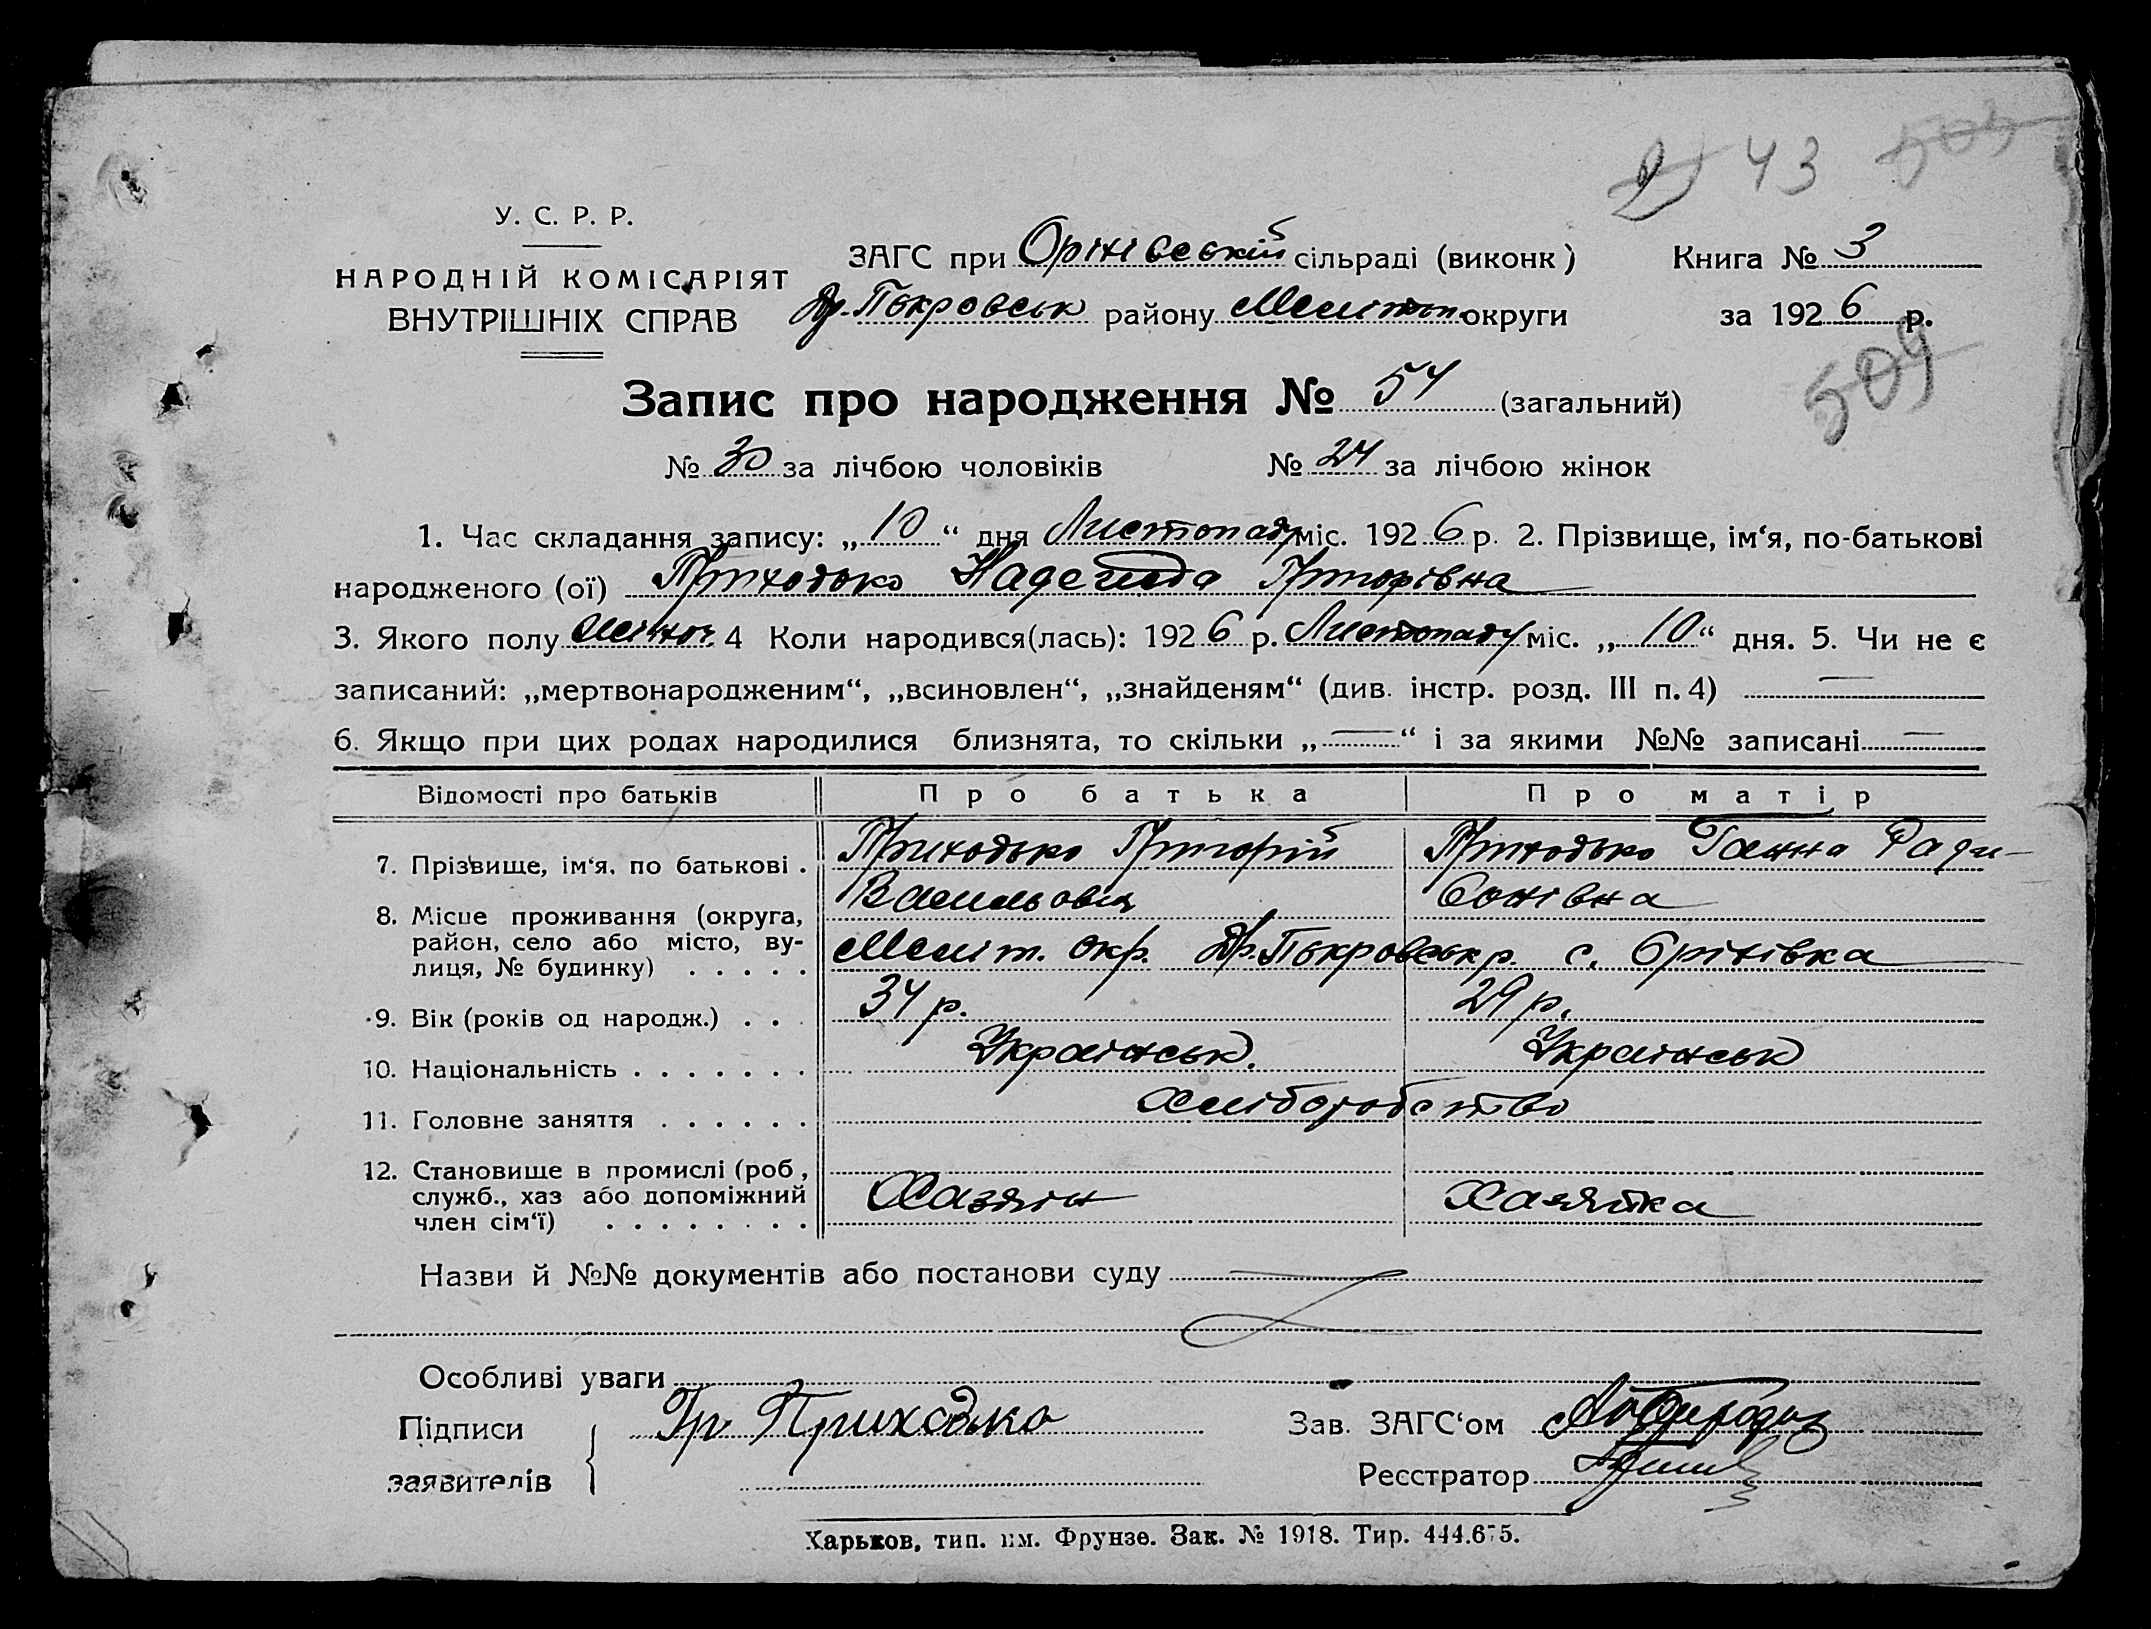 43 509
У. С. Р. Р.
НАРОДНІЙ КОМІСАРІЯТ
ВНУТРІШНІХ СПРАВ
ЗАГС при Орінівській сільраді (виконк) Книга № 3
Др.-Покровськ району Меліт. округи за 1926 р.
509
Запис про народження № 54 (загальний)
№ 30 за лічбою чоловіків № 24 за лічбою жінок
1. Час складання запису: „10“ дня Листопаду міс. 1926 р. 2. Прізвище, ім‘я, по-батькові
народженого (ої) Приходько Надежда Григорівна
3. Якого полу жіноч. 4 Коли народився(лась): 1926 р. Листопаду міс. „10“ дня. 5. Чи не є
записаний: „мертвонародженим“, „всиновлен“, „знайденям“ (див. інстр. розд. III п. 4) —
6. Якщо при цих родах народилися близнята, то скільки „—“ і за якими №№ записані —
Відомості про батьків Про батька Про матір
7. Прізвище, ім‘я, по батькові . Приходько Григорій Приходько Ганна Ради-
Васильович вонівна
8. Місце проживання (округа,
район, село або місто, ву-
лиця, № будинку) . . . . . Меліт. окр. Др.Покровськ р. с. Орінівка
9. Вік (років од народж.) . . . 34 р. 29 р.
10. Національність . . . . . . . Українськ. Українськ
11. Головне заняття . . . . . . Хліборобство
12. Становище в промислі (роб.,
служб., хаз або допоміжний
член сім‘ї) . . . . . . . . Хазяїн Хазяйка
Назви й №№ документів або постанови суду
Особливі уваги
Підписи Гр Приходько Зав. ЗАГС‘ом
заявителів Реєстратор
Харьков, тип. им. Фрунзе. Зак. № 1918. Тир. 444.675.